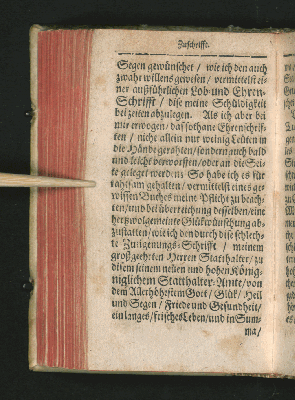 Zuschrifft.
Segen gewünschet / wie ich den auch
zwahr willens gewesen / vermittelst ei-
ner außführlichen Lob- und Ehren-
Schrifft / dise meine Schüldigkeit
bei zeiten abzulegen. Als ich aber bei
mir erwogen / daß sothane Ehrenschrif-
ten / nicht allein nur weinig Leüten in
die Hände gerahten / sondern auch bald
und leicht verworffen / oder an die Sei-
te geleget werden; So habe ich es für
rahtsam gehalten / vermittelst eines ge-
wissen Buches meine Pflicht zu beach-
ten / und bei überreichung desselben / eine
hertzwolgemeinte Glükwünschung ab-
zustatten / wie ich den durch dise schlech-
te Zueigenungs-Schrifft / meinem
großgeehrten Herren Statthalter / zu
disem seinem neüen und hohen König-
niglichem Statthalter-Amte / von
dem Allerhöhestem Gott / Glük / Heil
und Segen / Friede und Gesundheit /
ein langes / frisches Leben / und in Sum-
ma /